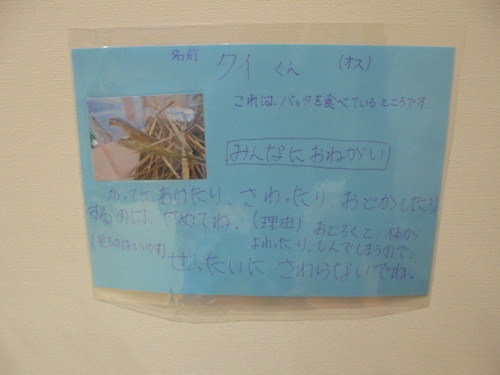 名前 クイ くん (オス)
これは、バッタを食べているところです
みんなにおねがい
かってにあけたり、さわったり、おどかしたり
するのは、やめてね。(理由) おどろくと、体が
(見るのはいいです) よわったり、しんでしまうので、
ぜったいに、さわらないでね。